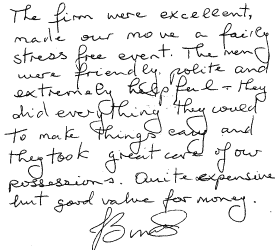 The firm were excellent,
made our move a fairly
stress free event. The men
were friendly, polite and
extremely helpful - they
did everything they could
to make things easy and
they took great care of our
possessions. Quite expensive
but good value for money.